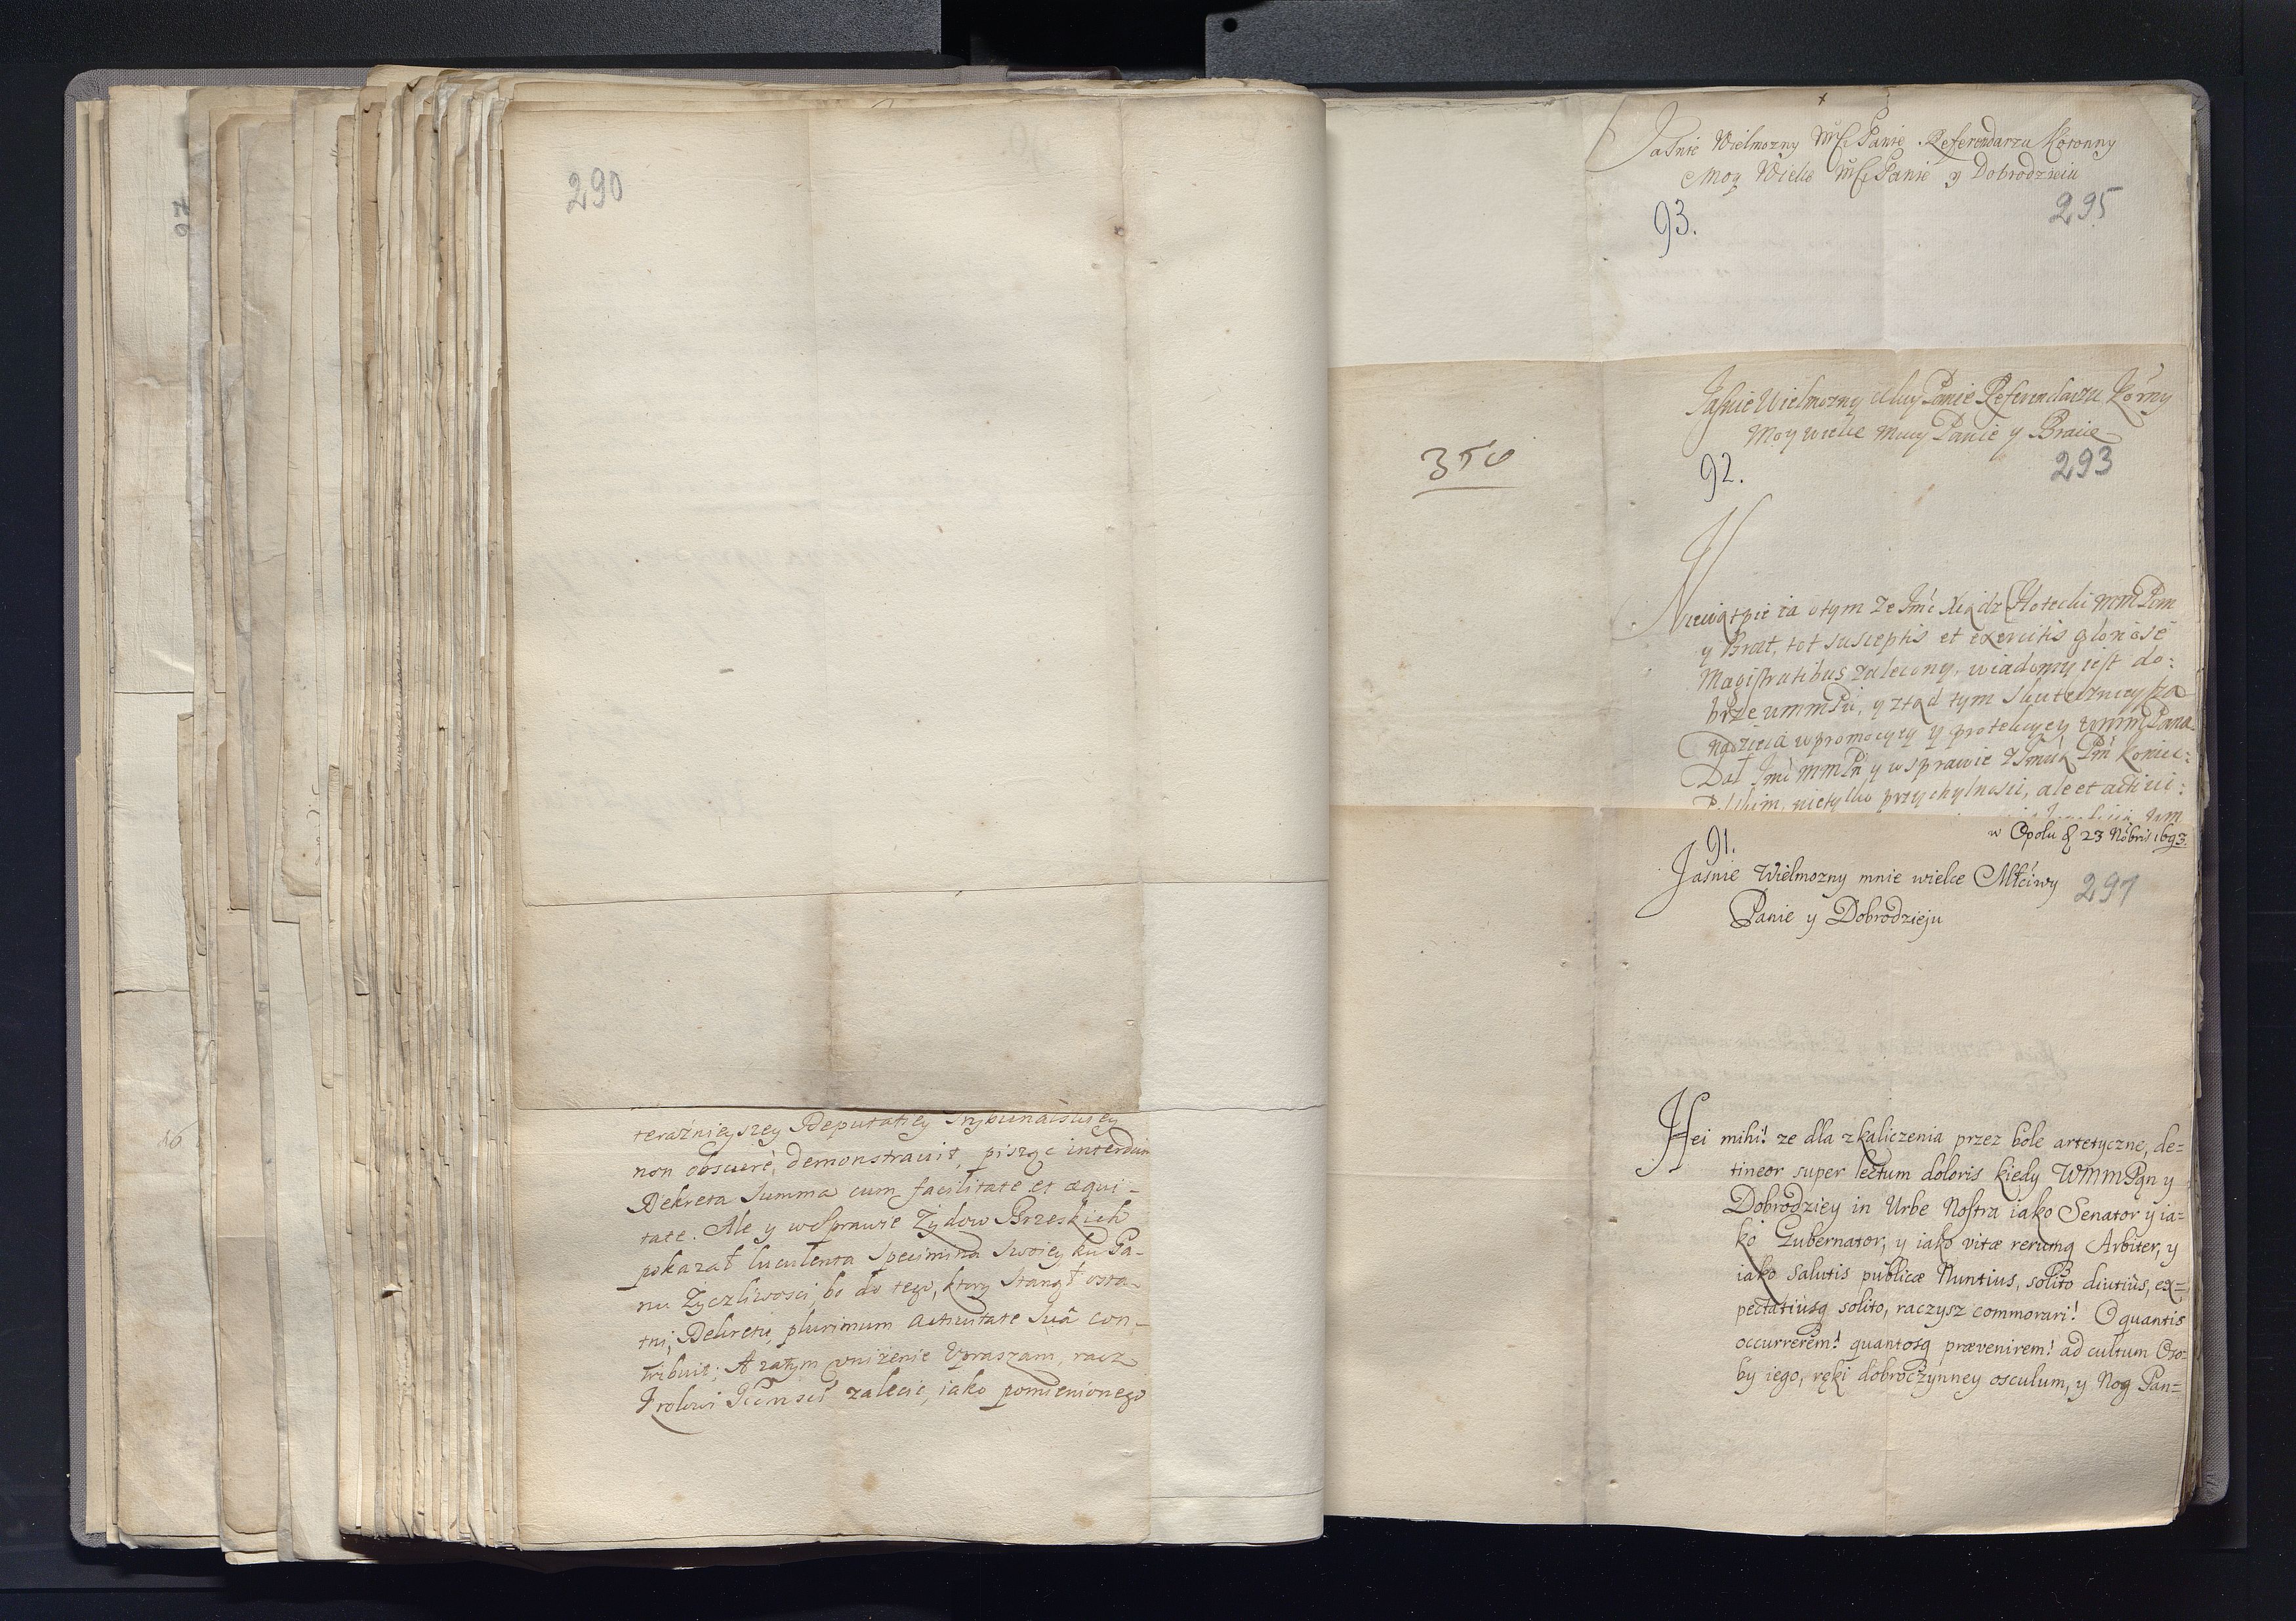 290
teraznieyszey Deputatiey Trybunalskiey
non obscurè, demonstrauit, pisząc interdum
Dekreta summa cum facilitate et æqui-
tate. Ale y w sprawie Żydow Brzeskich
pokazał luculenta specimina swoiey ku Pa-
nu Życzliwosci, bo do tego, ktory stanął osta-
tni, Dekretu plurimum actiuitate suâ con-
tribuit; A zatym vniżenie Vpraszam, racz
Krolowi zalecic, iako pomienionego
Jaśnie Wielmozny Panie Referendarzu Koronny
Moy Wielce Panie y Dobrodzieiu
93.
295
Jaśnie Wielmozny Panie Referendarzu Korny
Moy wielce Panie y Bracie
92.
293
350
Niewątpie ia otym ze Jmć Xiądz mmPan
y Brat, tot susceptis et exercitis gloriosè
Magistratibus zalecony, wiadomy iest do:
brze ummPu, y ztąd tym skuteczniey
nadzieia w promocyey y protekcyey ummPana
Dał Jmć mmPn y w sprawie z Koniec:
Polskim, nietylko przychylnosci, ale et
w Opolu 23 Nobris 1693.
91.
Jaśnie Wielmozny mnie wielce Młciwy
291
Panie y Dobrodzieju
Hei mihi! ze dla zkaliczenia przez bole artetyczne, de=
tineor super lectum doloris kiedy WMmPan y
Dobrodziey in Urbe Nostra iako Senator y ia=
ko Gubernator, y iako vitæ rerumq Arbiter, y
iako Salutis publicæ Nuntius, solito diutiùs, ex=
pectatiusq solito, raczysz commorari! O quantis
occurrerem! quantosq prævenirem! ad cultum Oso=
by iego, ręki dobroczynney osculum, y Nog Pan=